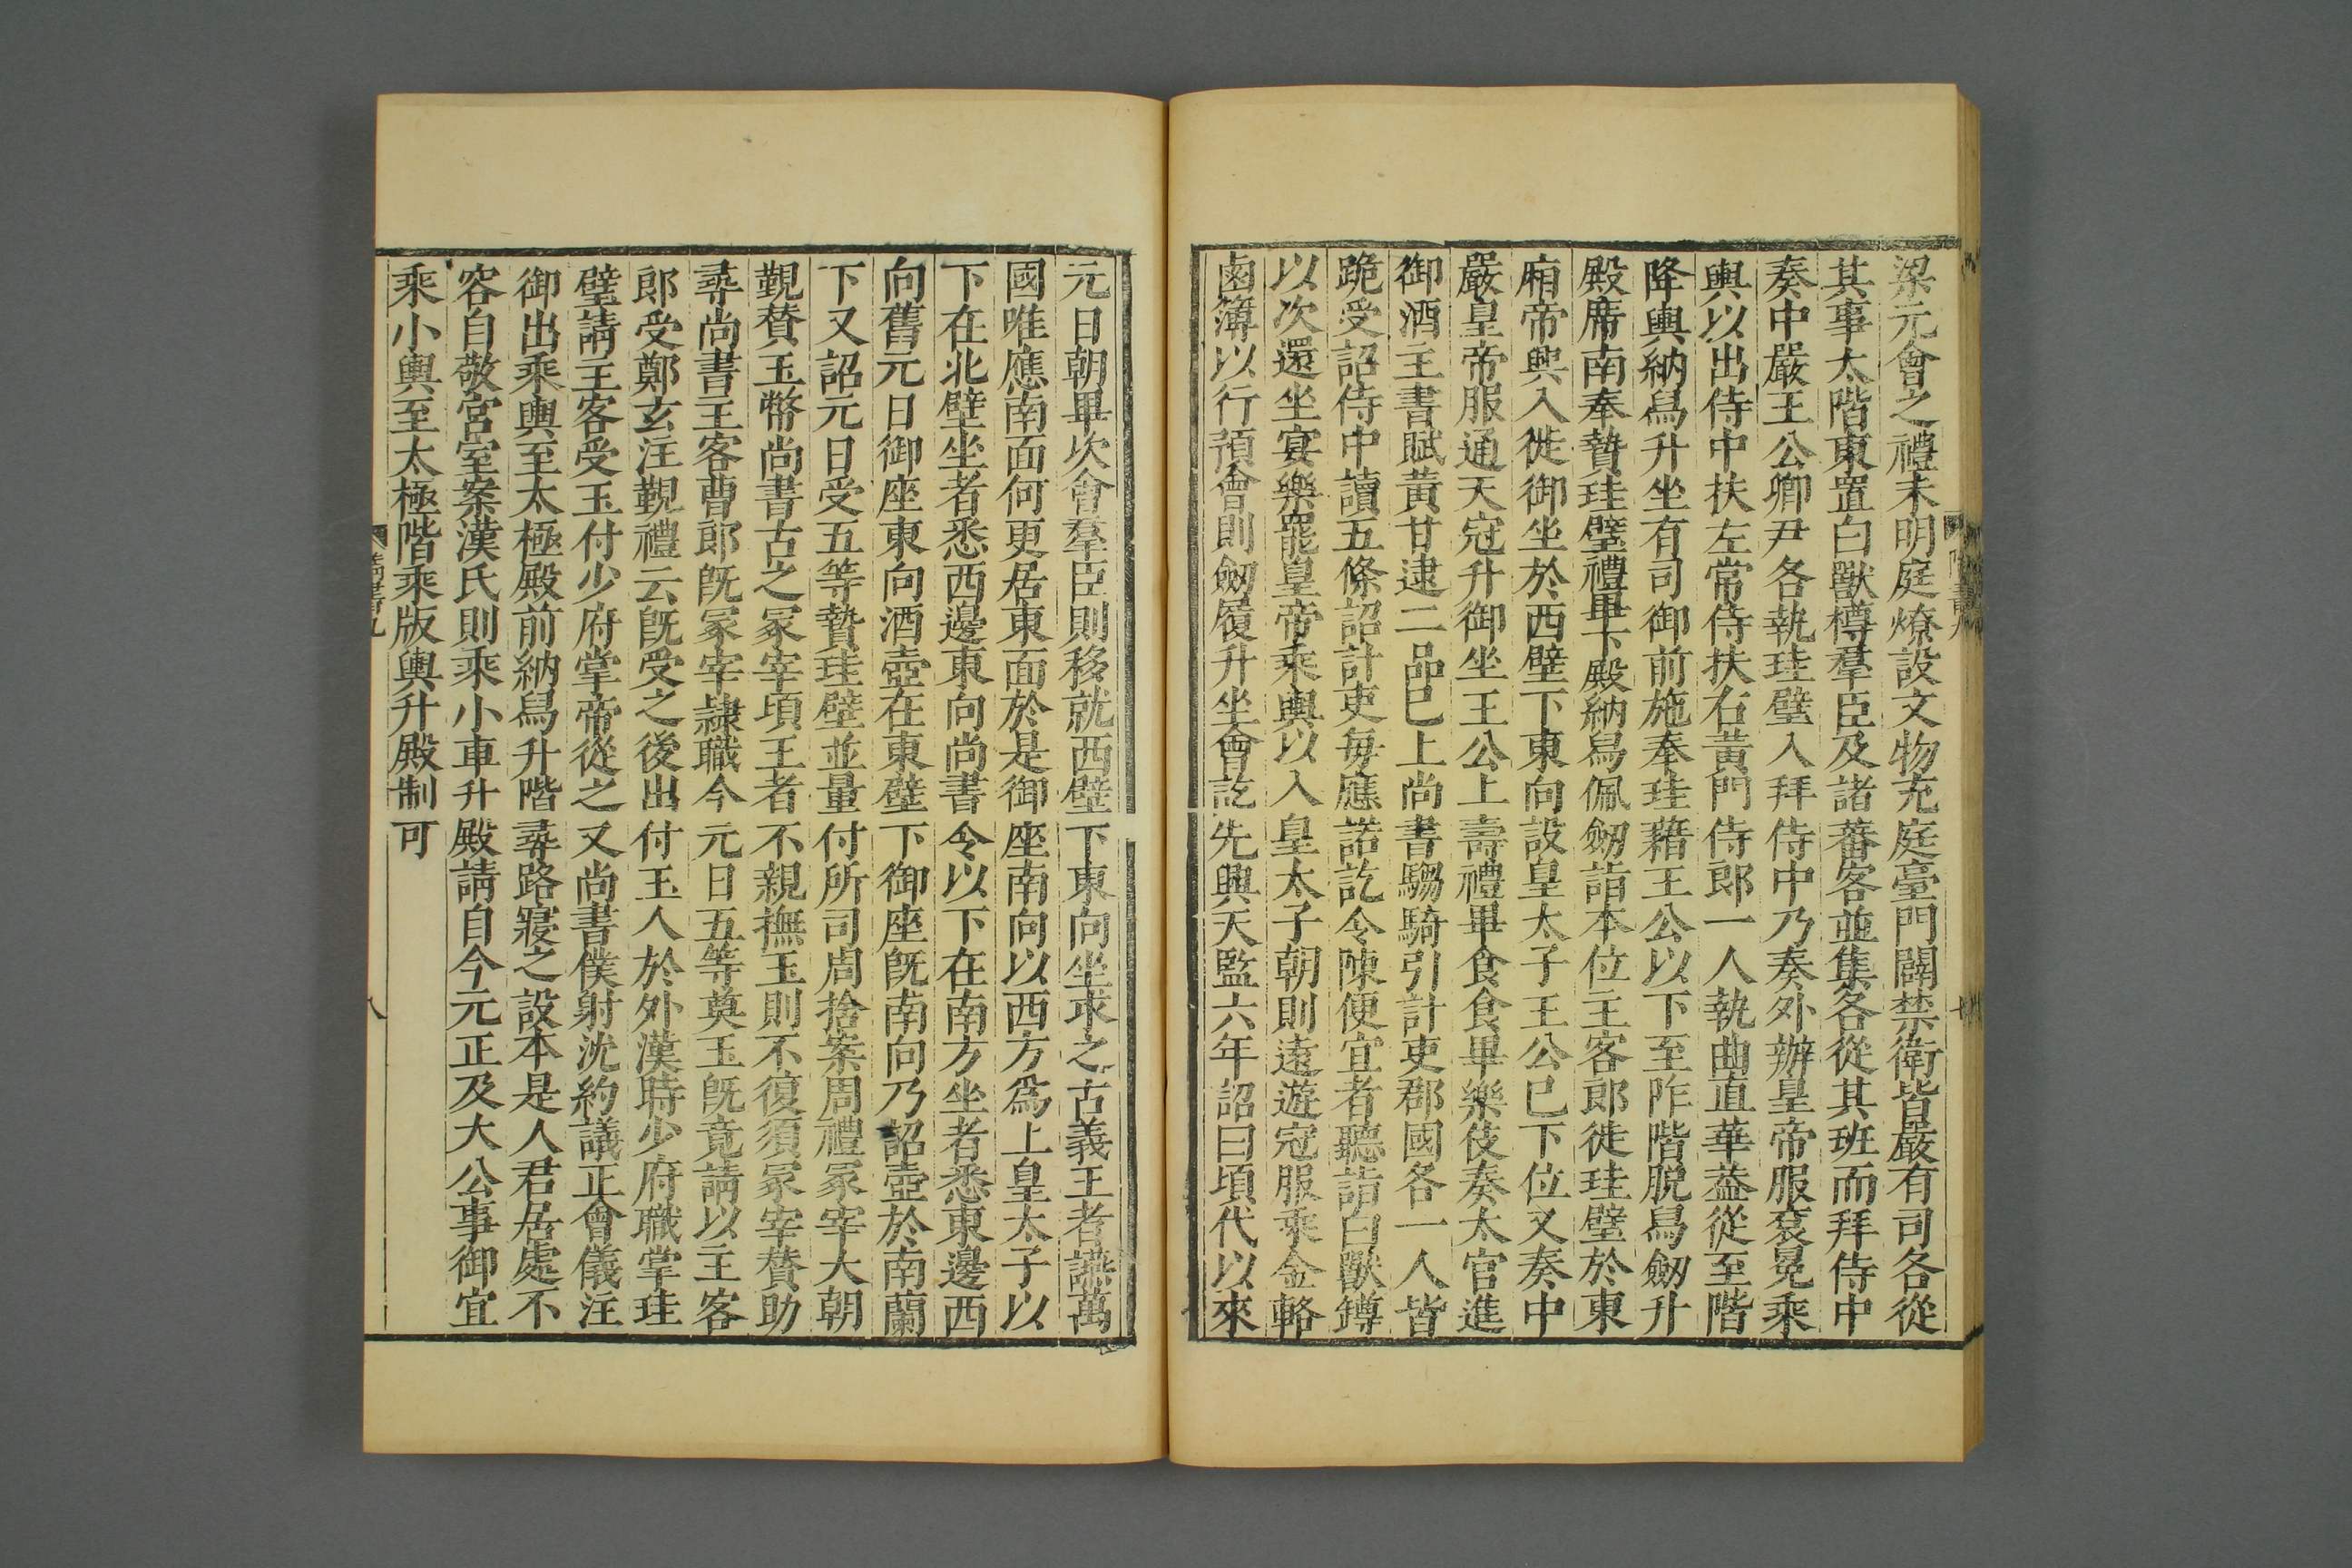 梁元會之禮未明庭燎設文物充庭臺門闢禁衛皆嚴有司各從
其事太階東置白獸樽羣臣及諸蕃客並集各從其班而拜侍中
奏中嚴王公卿尹各執珪璧入拜侍中乃奏外辦皇帝服衮冕乘
輿以出侍中扶左常侍扶右黃門侍郎一人執曲直華葢從至階
降輿納舄升坐有司御前施奉珪藉王公以下至阼階脫舄劒升
殿席南奉贄珪璧禮畢下殿納舄佩劒詣本位主客郎徙珪璧於東
廂帝興入徙御坐於西壁下東向設皇太子王公巳下位又奏中
嚴皇帝服通天冠升御坐王公上壽禮畢食食畢樂伎奏太官進
御酒主書賦黃甘逮二品巳上尚書騶騎引計吏郡國各一人皆
跪受詔侍中讀五條詔計吏每應諾訖令陳便宜者聽詣白獸罇
以次還坐宴樂罷皇帝乘輿以入皇太子朝則遠遊冠服乘金輅
鹵簿以行預會則劒履升坐會訖先興天監六年詔曰頃代以來
元日朝畢次會羣臣則移就西壁下東向坐求之古義王者讌萬
國唯應南面何更居東面於是御座南向以西方爲上皇太子以
下在北壁坐者悉西邊東向尚書令以下在南方坐者悉東邊西
向舊元日御座東向酒壺在東壁下御座旣南向乃詔壺於南蘭
下又詔元日受五等贄珪璧並量付所司周捨案周禮冢宰大朝
覲贊玉幣尚書古之冢宰頃王者不親撫玉則不復須冢宰贊助
尋尚書主客曹郎旣冢宰隷職今元日五等奠玉旣竟請以主客
郎受鄭玄注覲禮云旣受之後出付玉人於外漢時少府職掌珪
璧請主客受玉付少府掌帝從之又尚書僕射沈約議正會儀注
御出乘輿至太極殿前納舄升階尋路寢之設本是人君居處不
容自敬宮室案漢氏則乘小車升殿請自今元正及大公事御宜
乘小輿至太極階乘版輿升殿制可
八